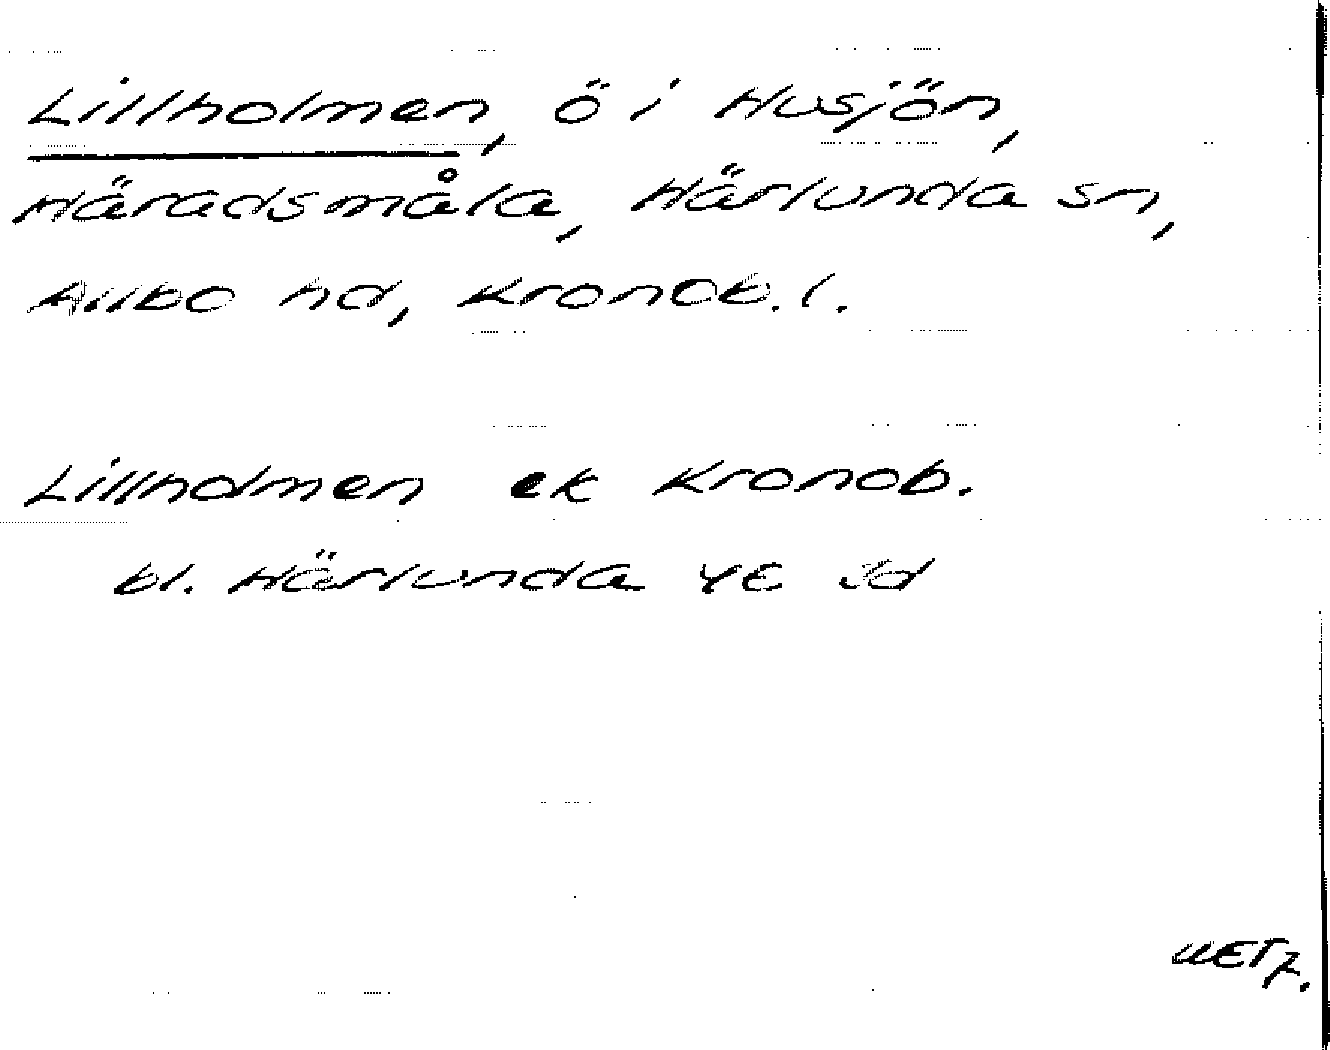 Lillholmen, ö i Husjön,
Häradsmåla, Härlunda sn,
Allbo hd, Kronob. l.
Lillholmen ek Kronob.
bl. Härlunda 4E Jd